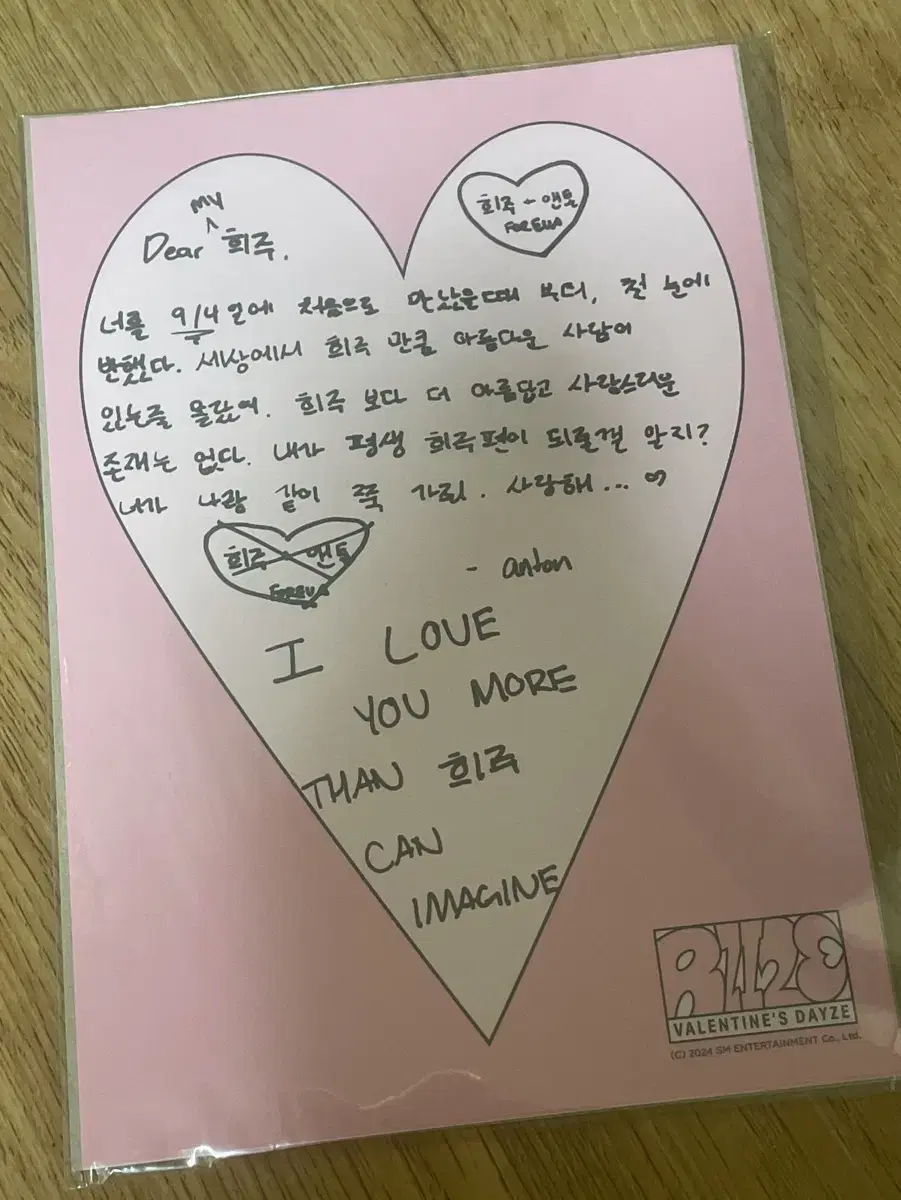 MY
Dear 희주.
희주 ~ 앤톤
FOREVA
너를 9/4일에 처음으로 만났을때 부터, 첫 눈에
반했다. 세상에서 희주 만큼 아름다운 사람이
있는줄 몰랐어. 희주 보다 더 아름답고 사랑스러운
존재는 없다. 내가 평생 희주편이 되줄껄 알지?
너가 나랑 같이 쭉 사랑해... ♡
희주 앤톤
FOREVA
- anton
I LOVE
YOU MORE
THAN 희주
CAN
IMAGINE
RIIZE
VALENTINE'S DAYZE
(C) 2024 SM ENTERTAINMENT Co., Ltd.